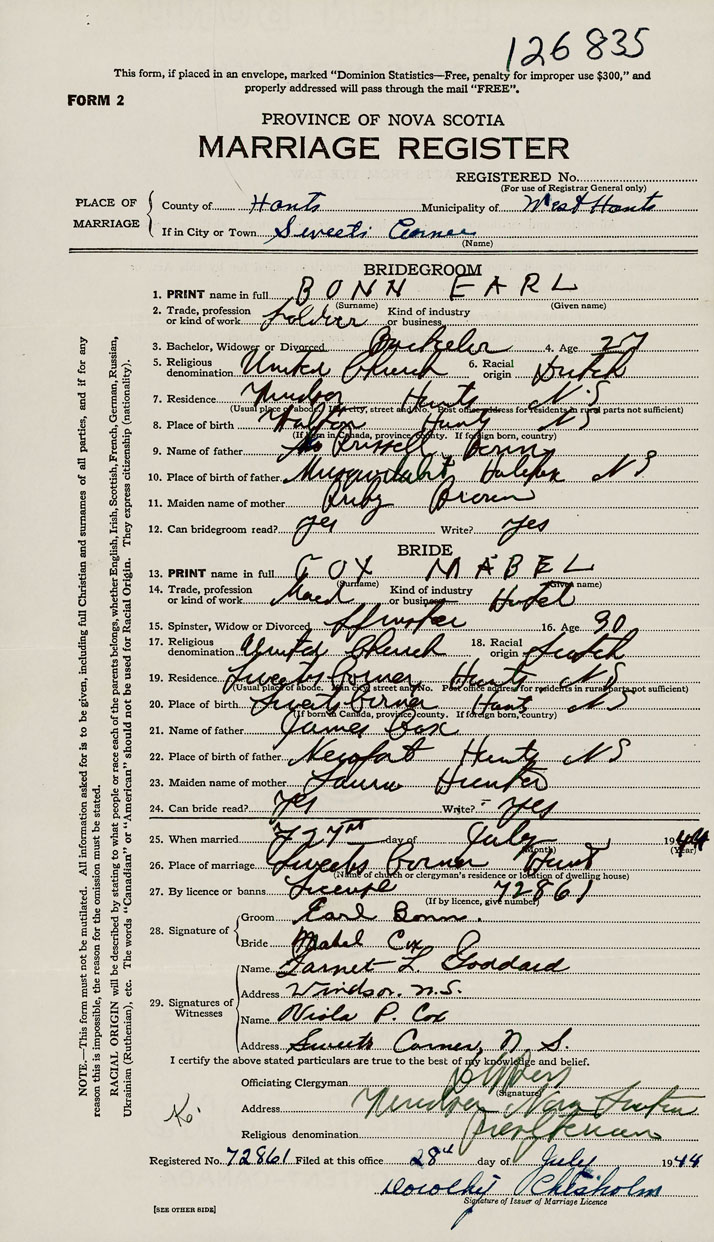 126835
This form, if placed in an envelope, marked "Dominion Statistics—Free, penalty for improper use $300," and
properly addressed will pass through the mail "FREE".
FORM 2
PROVINCE OF NOVA SCOTIA
MARRIAGE REGISTER
REGISTERED No.
(For use of Registrar General only)
PLACE OF MARRIAGE
County of Hants Municipality of West Hants
If in City or Town Sweets Corner
(Name)
BRIDEGROOM
1. PRINT name in full BONN EARL
(Surname) (Given name)
2. Trade, profession or kind of work Soldier Kind of industry or business
3. Bachelor, Widower or Divorced Bachelor 4. Age 27
5. Religious denomination United Church 6. Racial origin Dutch
7. Residence Windsor Hants N.S.
(Usual place of abode. If in city, street and No. Post office address for residents in rural parts not sufficient)
8. Place of birth Hants NS
(If born in Canada, province, county. If foreign born, country)
9. Name of father Russell Bonn
10. Place of birth of father Musquodoboit Halifax NS
11. Maiden name of mother Ruby Brown
12. Can bridegroom read? yes Write? yes
BRIDE
13. PRINT name in full COX MABEL
(Surname) (Given name)
14. Trade, profession or kind of work Maid Kind of industry or business Hotel
15. Spinster, Widow or Divorced Spinster 16. Age 30
17. Religious denomination United Church 18. Racial origin Scotch
19. Residence Sweets Corner Hants NS
(Usual place of abode. If in city, street and No. Post office address for residents in rural parts not sufficient)
20. Place of birth Sweets Corner Hants NS
(If born in Canada, province, county. If foreign born, country)
21. Name of father James Cox
22. Place of birth of father Newport Hants NS
23. Maiden name of mother Laura Hunter
24. Can bride read? yes Write? yes
25. When married 27th day of July 1944
(Month) (Year)
26. Place of marriage Sweets Corner Hants
(Name of church or clergyman's residence or location of dwelling house)
27. By licence or banns License 72861
(If by licence, give number)
28. Signature of
Groom Earl Bonn.
Bride Mabel Cox
29. Signatures of Witnesses
Name Garnet L. Goddard
Address Windsor. N.S.
Name Viola P. Cox
Address Sweets Corner, N. S.
I certify the above stated particulars are true to the best of my knowledge and belief.
Officiating Clergyman
(Signature)
Address Windsor Nova Scotia
Religious denomination Presbyterian
Registered No. 72861 Filed at this office 28th day of July 1944
Dorothy Chisholm
Signature of Issuer of Marriage Licence
[SEE OTHER SIDE]
NOTE.—This form must not be mutilated. All information asked for is to be given, including full Christian and surnames of all parties, and if for any
reason this is impossible, the reason for the omission must be stated.
RACIAL ORIGIN will be described by stating to what people or race each of the parents belongs, whether English, Irish, Scottish, French, German, Russian,
Ukrainian (Ruthenian), etc. The words "Canadian" or "American" should not be used for Racial Origin. They express citizenship (nationality).